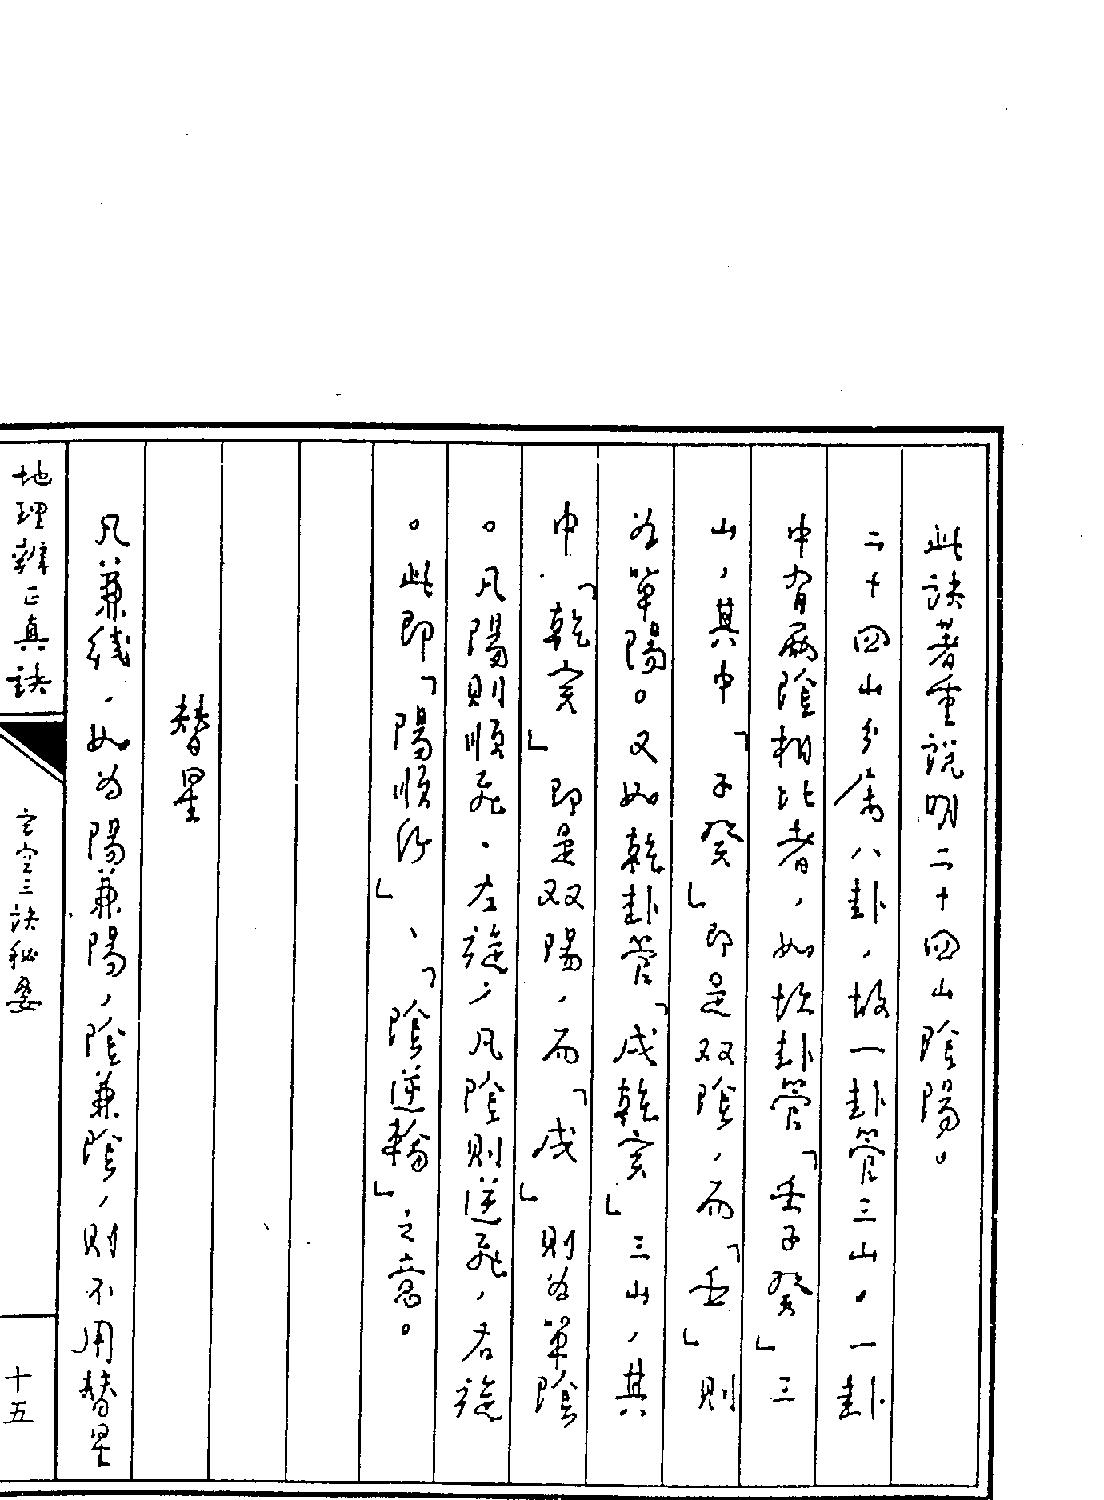 此訣著重說明二十四山陰陽。
二十四山分屬八卦，故一卦管三山。一卦
中有兩陰相比者，如坎卦管「壬子癸」三
山，其中「子癸」即是双陰，而「壬」則
為單陽。又如乾卦管「戌乾亥」三山，其
中「乾亥」即是双陽，而「戌」則為單陰
。凡陽則順飛，左旋，凡陰則逆飛，右旋
。此即「陽順行」、「陰逆輪」之意。
替星
凡兼线，如為陽兼陽，陰兼陰，則不用替星
地理辨正真訣
玄空三訣秘要
十五